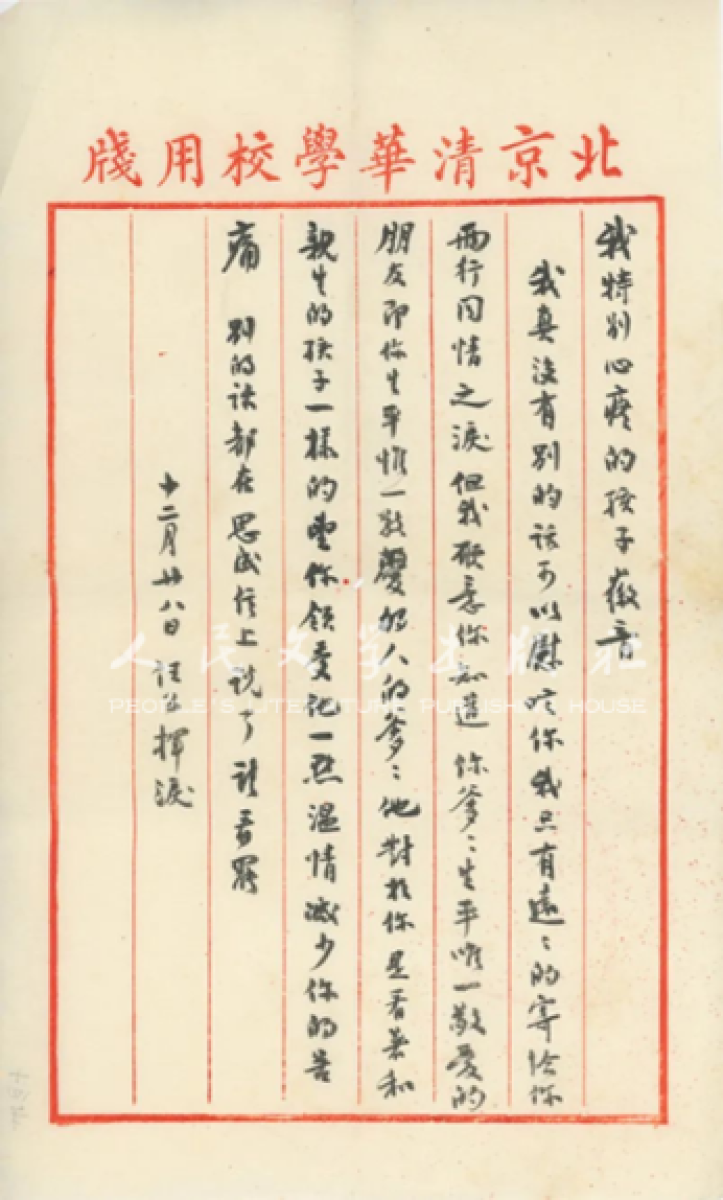 北京清華學校用牋
我特别心疼的孩子徽音
我真没有别的话可以慰唁你我只有遠〻的寄给你
两行同情之淚但我願意你知道 你爹〻生平唯一敬爱的
朋友即你生平惟一敬愛的人的爹〻他對於你是看着和
親生的孩子一樣的望你領受他一點温情減少你的苦
痛 别的话都在思成信上说了請看罷
十二月廿八日 任公揮淚
人民文学出版社
PEOPLE'S LITERATURE PUBLISHING HOUSE